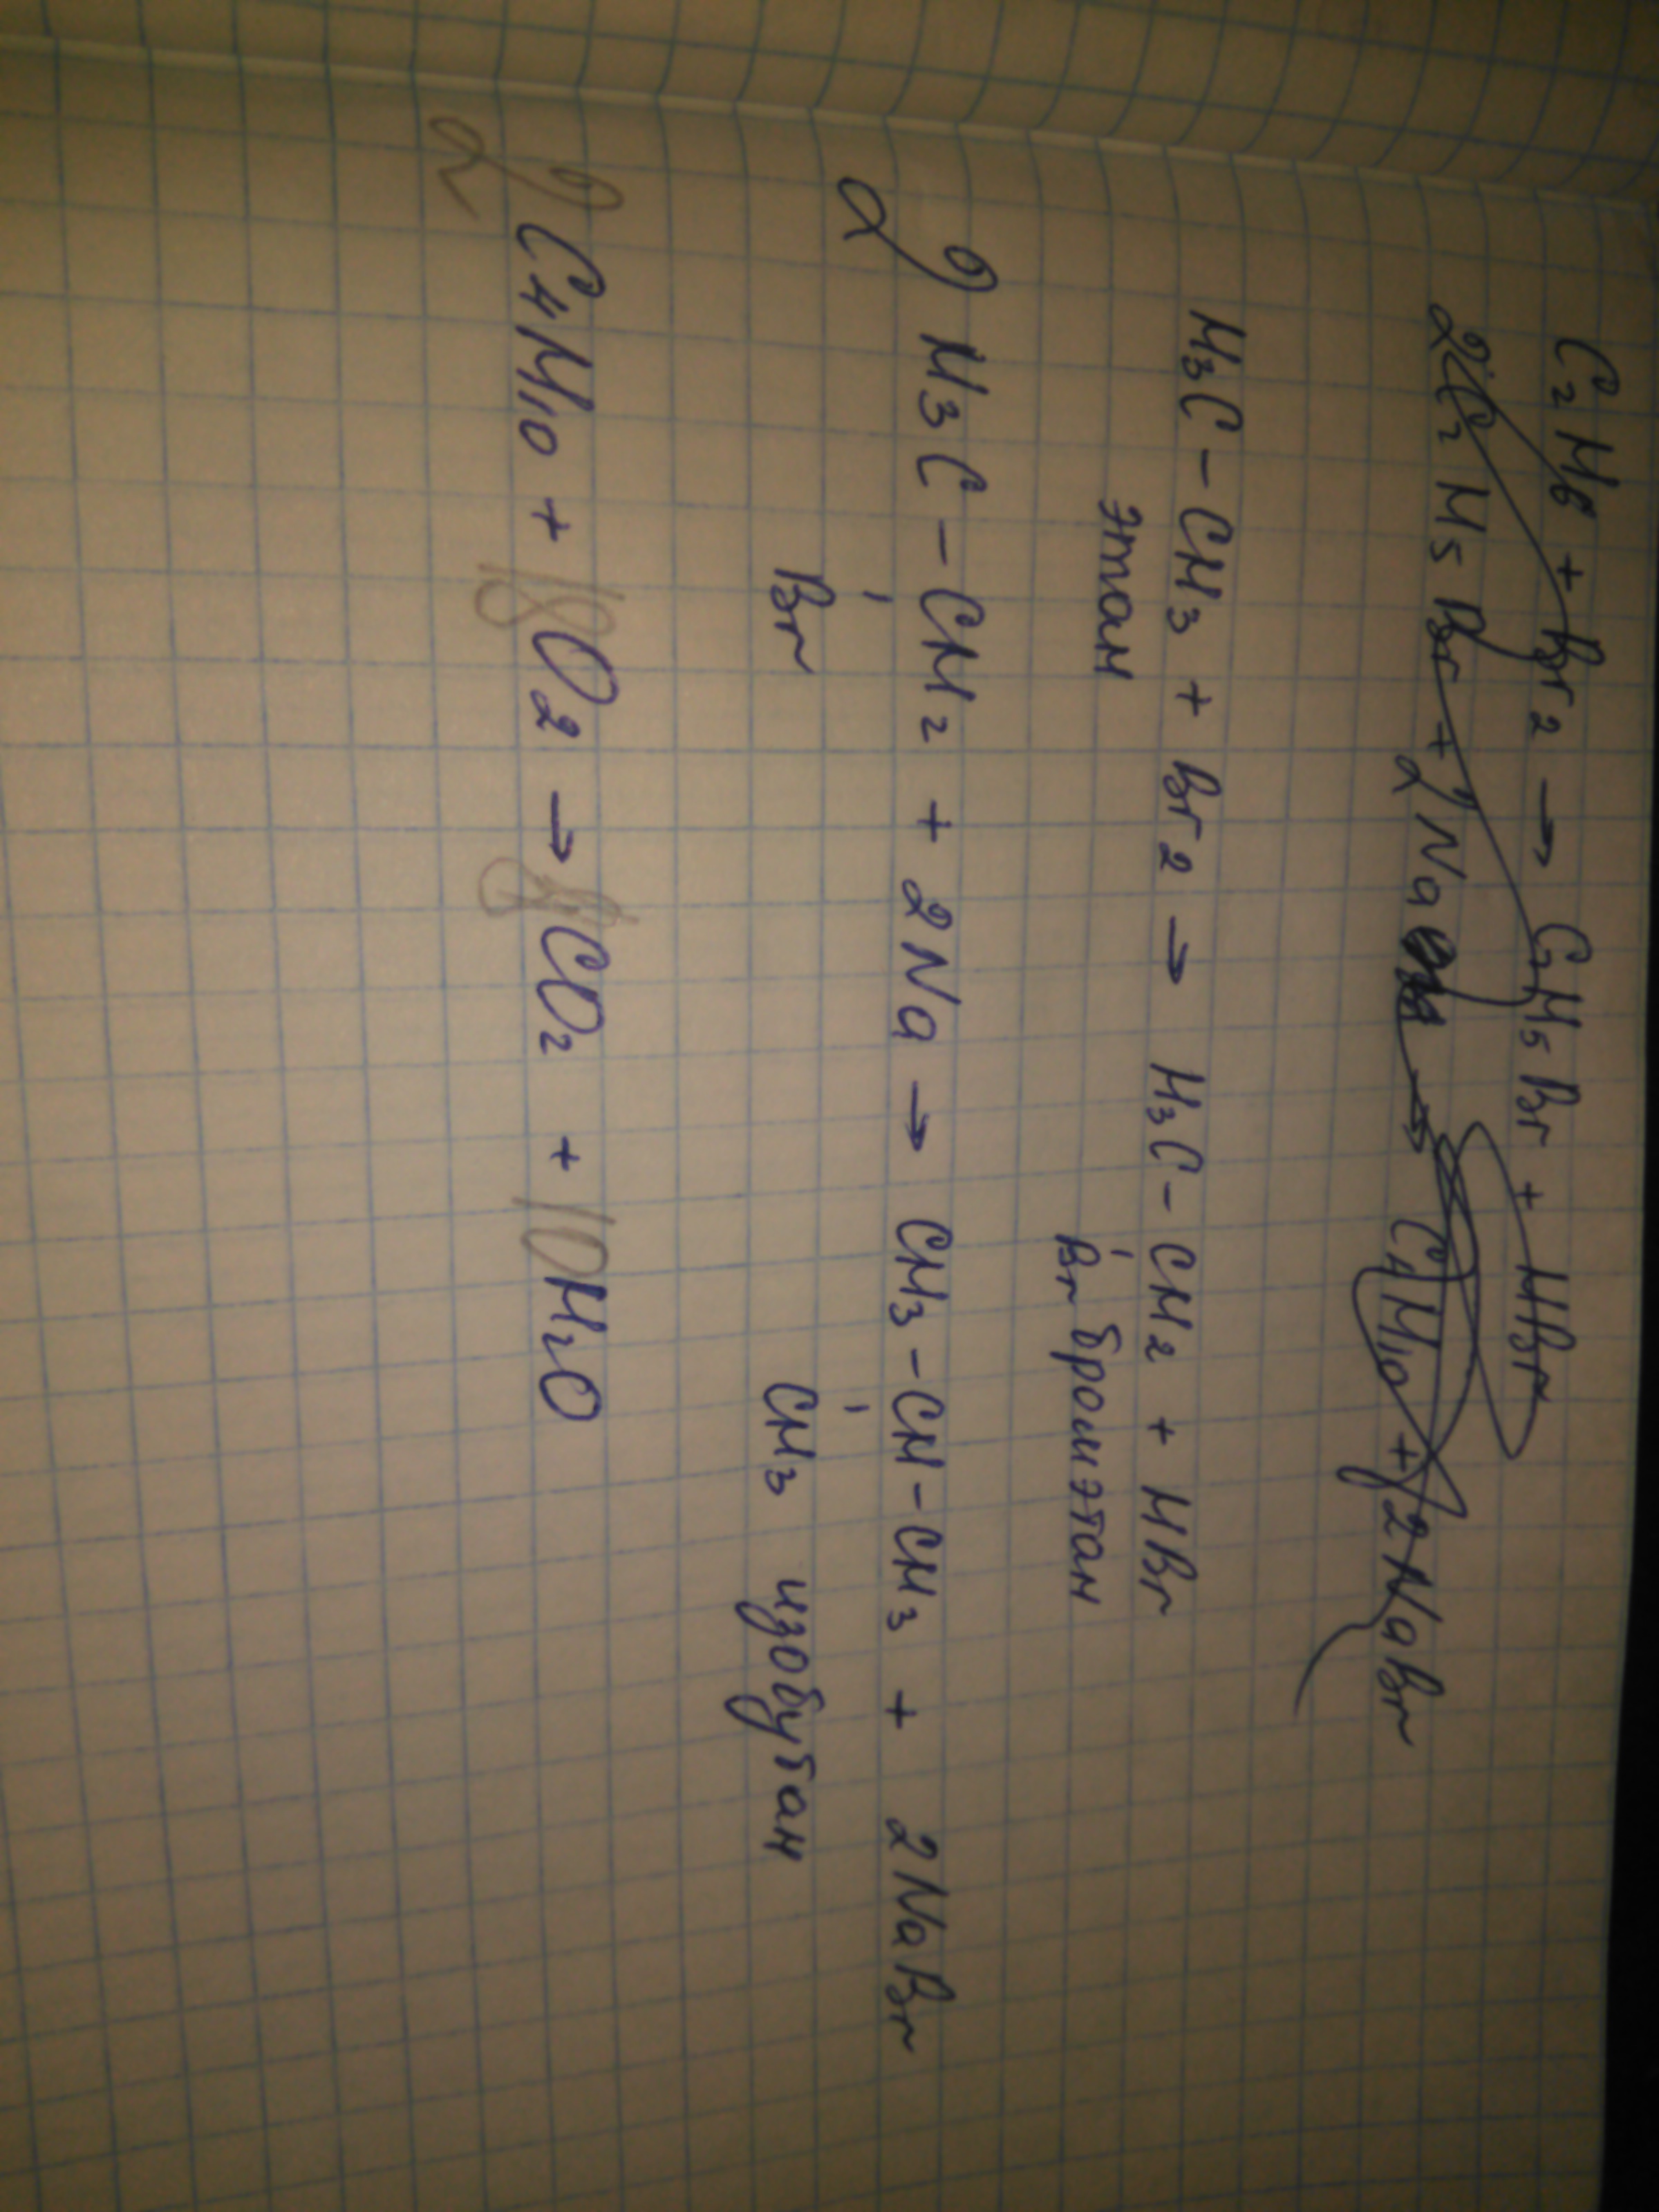 C₂H₆ + Br₂ → C₂H₅Br + HBr
2C₂H₅Br + 2Na → C₄H₁₀ + 2NaBr
H₃C – CH₃ + Br₂ → H₃C – CH₂ + HBr
этан Br бромэтан
2 H₃C – CH₂ + 2Na → CH₃ – CH – CH₃ + 2NaBr
Br CH₃ изобутан
2 C₄H₁₀ + O₂ → 8CO₂ + 10H₂O